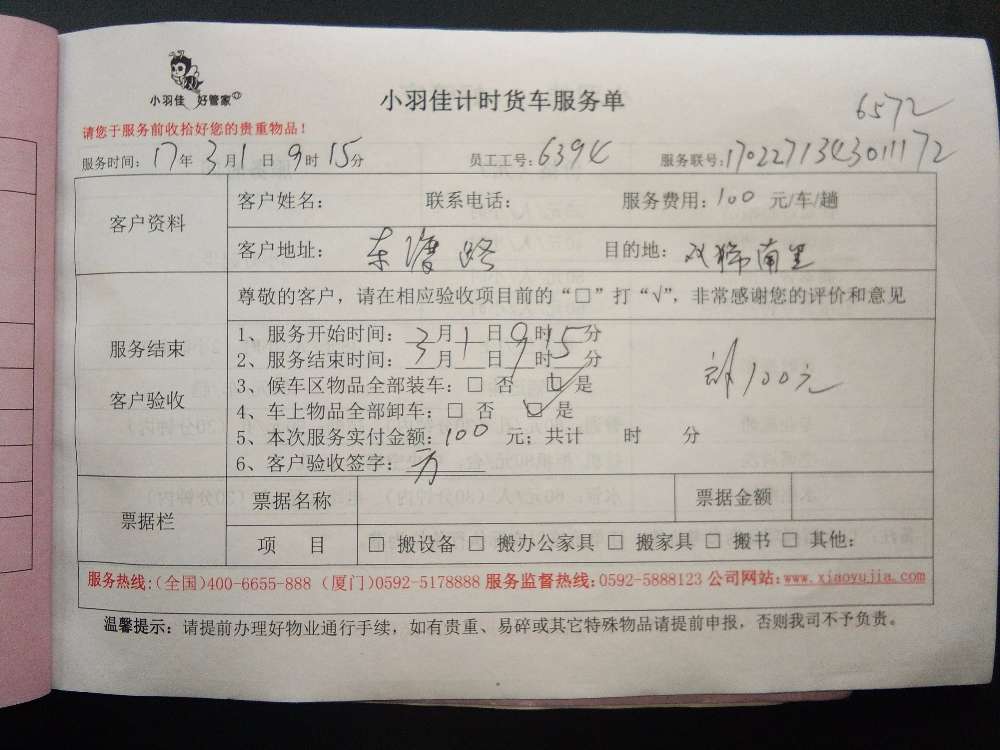 小羽佳 好管家
小羽佳计时货车服务单
6572
请您于服务前收拾好您的贵重物品！
服务时间：17年3月1日9时15分 员工工号：6394 服务联号：1702271343011172
客户资料
客户姓名： 联系电话： 服务费用：100 元/车/趟
客户地址：东渡路 目的地：双狮南里
服务结束
客户验收
尊敬的客户，请在相应验收项目前的“□”打“√”，非常感谢您的评价和意见
1、服务开始时间：3月1日9时15分
2、服务结束时间：3月1日 时 分
3、候车区物品全部装车：□ 否 □ 是
4、车上物品全部卸车：□ 否 ☑ 是
5、本次服务实付金额：100 元；共计 时 分
6、客户验收签字：方
100元
票据栏
票据名称 票据金额
项 目 □ 搬设备 □ 搬办公家具 □ 搬家具 □ 搬书 □ 其他：
服务热线：(全国)400-6655-888 (厦门)0592-5178888 服务监督热线：0592-5888123 公司网站：www.xiaoyujia.com
温馨提示：请提前办理好物业通行手续，如有贵重、易碎或其它特殊物品请提前申报，否则我司不予负责。